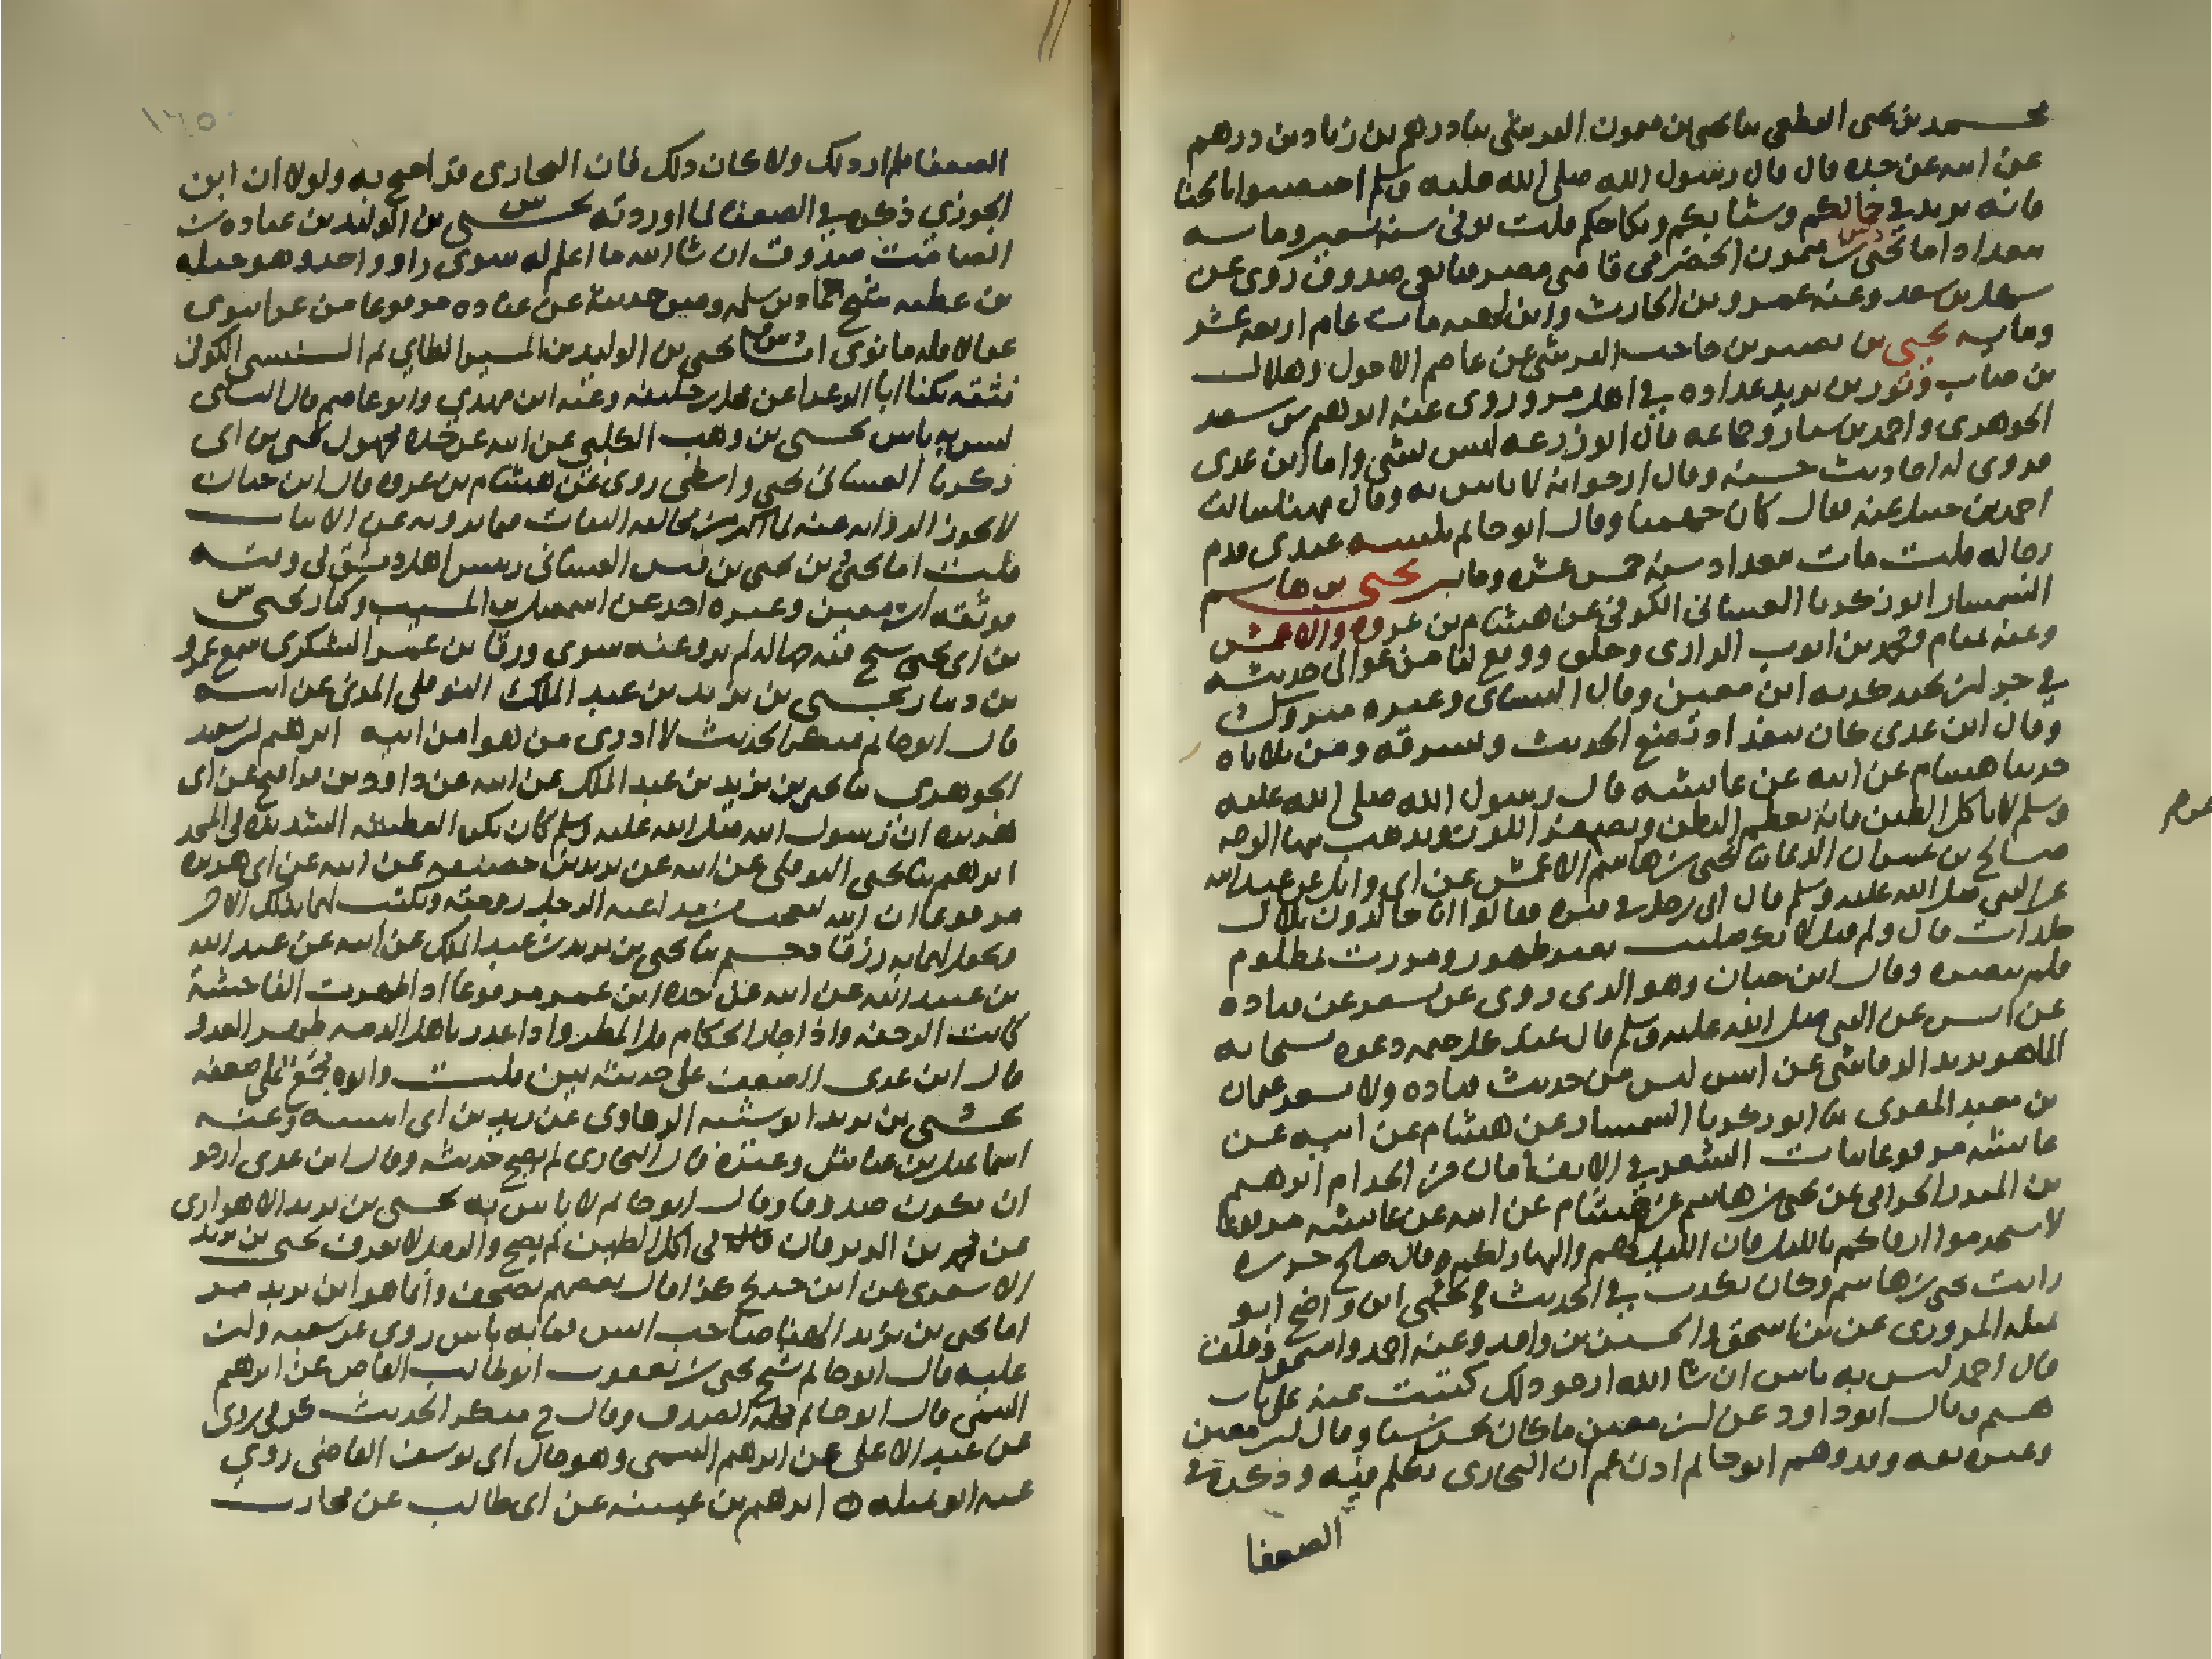 محمد بن يحيى القطعي ثنا يحيى بن ميمون القرشي ثنا درهم بن زياد بن درهم
عن ابيه عن جده قال قال رسول الله صلى الله عليه وسلم اختضبوا بالحنا
فانه يزيد في جمالكم وشبابكم ونكاحكم قلت توفي سنة تسعين وماية
ببغداد اما يحيى بن ميمون الحضرمي قاضي مصر فتابعي صدوق روى عن
سهل بن سعد وعنه عمرو بن الحارث وابن لهيعه مات عام اربعه عشر
وماية يحيى بن نصر بن حاجب القرشي عن عاصم الاحول وهلال
بن خباب وثور بن يزيد عداده في اهل مرو روى عنه ابرهيم بن سعد
الجوهري واحمد بن سيار وجماعه قال ابو زرعه ليس بشي واما ابن عدي
فروى له احاديث حسنه وقال ارجوا انه لا باس به وقال مهنا سالت
احمد بن حنبل عنه فقال كان جهميا وقال ابو حاتم بلينه عندي قدم
رجاله قلت مات ببغداد سنة خمس عشره وماتين يحيى بن هاشم
السمسار ابو زكريا الغساني الكوفي عن هشام بن عروه والاعمش
وعنه تمتام ومحمد بن ايوب الرازي وخلق ووقع لنا من عوالي حديثه
في جزلين عند كذبه ابن معين وقال النساي وغيره متروك
وقال ابن عدي كان ببغداد تضع الحديث وسرقه ومن بلاياه
حدثنا هشام عن ابيه عن عايشه قال رسول الله صلى الله عليه
وسلم لا تاكل الطين فانه يعظم البطن ويصفر اللون ويذهب ببها الوجه
صالح بن عمران الدعا ثنا يحيى بن هاشم الاعمش عن ابي وايل عن عبد الله
عن النبي صلى الله عليه وسلم قال اتي رجل في قبره فقالوا انا جالدون ثلاث
جلدات قال ولم قيل لانك صليت بغير طهور ومررت بمظلوم
فلم تنصره وقال ابن حبان وهو الذي روى عن مسعر عن قتاده
عن انس عن النبي صلى الله عليه وسلم قال عند كل ختمه دعوه مستجابه
انما هو يزيد الرقاشي عن انس ليس من حديث قتاده ولا مسعر عثمان
بن معبد المقري ثنا ابو زكريا السمسار عن هشام عن ابيه عن
عايشه مرفوعا نبات الشعر في الانف امان من الجذام ابرهيم
بن المنذر الحزامي عن يحيى بن هاشم عن هشام عن ابيه عن عايشه مرفوعا
لا تستخدموا ارقاكم بالليل فان الليل لهم والنهار لكم وقال صالح جزره
رايت يحيى بن هاشم وكان يكذب في الحديث يحيى ابن واضح ابو
تميله المروزي عن بن اسحق والحسين بن واقد وعنه احمد واسحق وخلق
قال احمد ليس به باس ان شا الله ارجو ذلك كتبت عنه على باب
هشيم وقال ابو داود عن ابن معين ما كان يحسن شيا وقال ابن معين
وغيره ثقه وقد وهم ابو حاتم اذ زعم ان البخاري تكلم فيه وذكره في
الضعفا
الضعفا فلم ار ذلك ولا كان ذلك فان البخاري قد احتج به ولولا ان ابن
الجوزي ذكره في الضعفا لما اوردته يحيى بن الوليد بن عباده بن
الصامت صدوق ان شا الله ما اعلم له سوى راو واحد وهو جبله
بن عطيه شيخ حماد بن سلمه ومتن حديثه عن عباده مرفوعا من غزا ينوي
عقالا فله ما نوى يحيى بن الوليد بن المسير الطاي ثم السنبسي الكوفي
فثقه يكنا ابا الزعرا عن محل بن خليفه وعنه ابن مهدي وابو عاصم قال النساي
ليس به باس يحيى بن وهب الكلبي عن ابيه عن جده مجهول يحيى بن ابي
زكريا الغساني يحيى واسطي روى عن هشام بن عروه قال ابن حبان
لا تجوز الروايه عنه لما اكثر من مخالفه الثقات فيما يرويه عن الاثبات
قلت اما يحيى بن يحيى بن قيس الغساني رييس اهل دمشق في وقته
فوثقه ابن معين وغيره اخذ عن ابن المسيب وكبار يحيى
بن ابي يحيى شيخ فيه جهاله لم يرو عنه سوى ورقا بن عمر اليشكري سمع عمرو
بن دينار يحيى بن يزيد بن عبد الملك النوفلي المدني عن ابيه
قال ابو حاتم منكر الحديث لا ادري من هو امن ابيه ابرهيم بن سعيد
الجوهري ثنا يحيى بن يزيد بن عبد الملك عن ابيه عن داود بن فراهيج عن ابي
هريره ان رسول الله صلى الله عليه وسلم كان يكره العطسه الشديده في المسجد
ابرهيم ثنا يحيى النوفلي عن ابيه عن يزيد بن خصيفه عن ابيه عن ابي هريره
مرفوعا ان الله يعجب من مداعبه الرجل زوجته ويكتب لهما بذلك الاجر
ويجعل لهما به رزقا دحيم ثنا يحيى بن يزيد بن عبد الملك عن ابيه عن عبد الله
بن عبد الله عن ابيه عن جده ابن عمر مرفوعا اذا ظهرت الفاحشة
كانت الرجفه واذا جار الحكام قل المطر واذا غدر باهل الذمه ظهر العدو
قال ابن عدي الضعف على حديثه بين قلت وابوه مجمع على ضعفه
يحيى بن يزيد ابو شيبه الرهاوي عن زيد بن ابي انيسه وعنه
اسماعيل بن عياش وغيره قال البخاري لم يصح حديثه وقال ابن عدي ارجو
ان يكون صدوقا وقال ابو حاتم لا باس به يحيى بن يزيد الاهوازي
عن محمد بن الزبرقان في اكل الطين لم يصح والرجل لا يعرف يحيى بن يزيد
الاشعري عن ابن جريج كذا قال بعضهم تصحيف وانما هو ابن بريد مر
اما يحيى بن يزيد الهنا صاحب انس فما به باس روى عنه شعبه وابن
عليه قال ابو حاتم شيخ يحيى بن يعقوب ابو طالب القاص عن ابرهيم
التيمي قال ابو حاتم محله الصدق وقال خ منكر الحديث كوفي روى
عن عبد الاعلى عن ابرهيم التيمي وهو خال ابي يوسف القاضي روى
عنه ابو تميله ه ابرهيم بن عيينه عن ابي طالب عن محارب